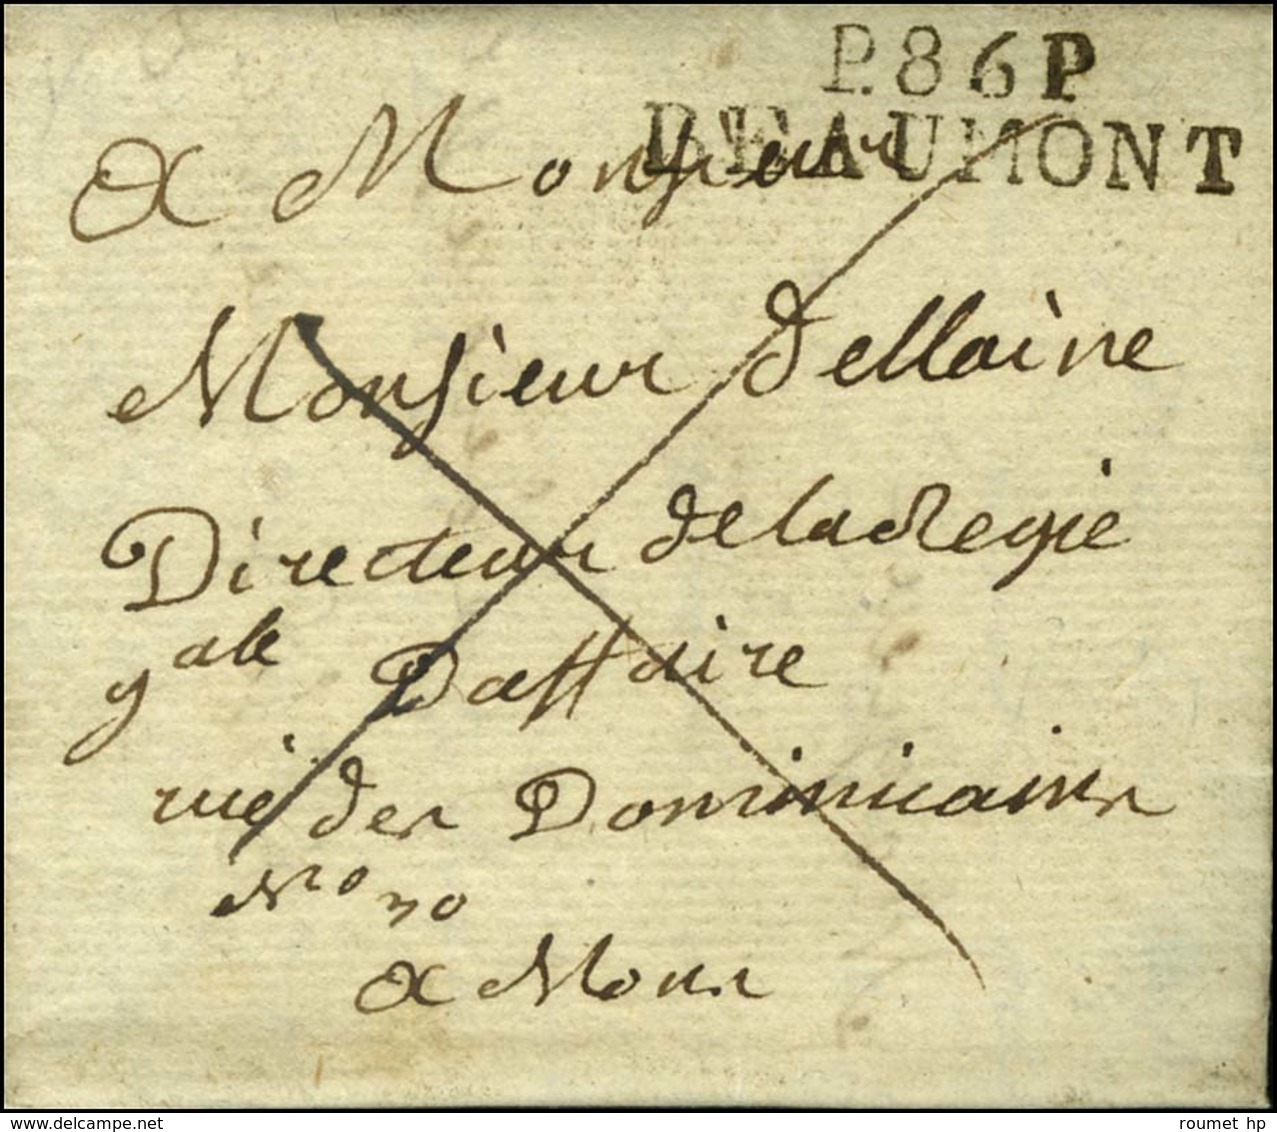 P.86P
BEAUMONT
A Monsieur
Monsieur Dellaine
Directeur de la Regie
gale Daffaire
rue des Dominicains
Nro 70
A Mons
roumet hp